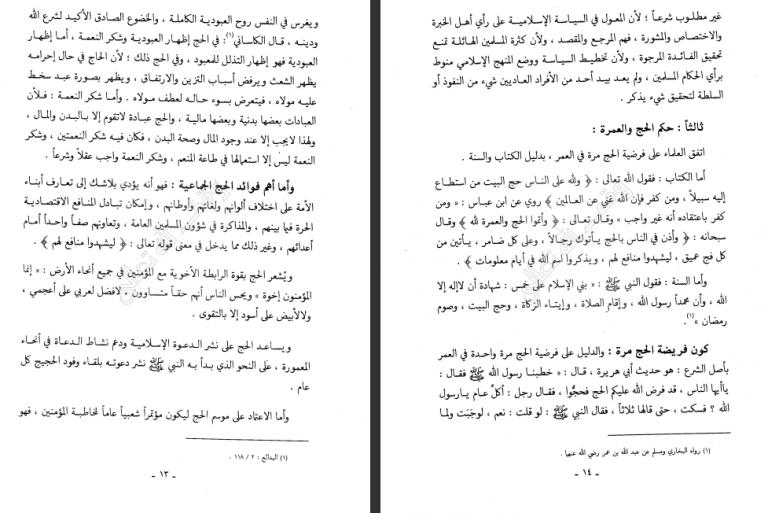 ويغرس في النفس روح العبودية الكاملة ، والخضوع الصادق الأكيد لشرع الله
ودينه ، قال الكاساني(١): في الحج إظهار العبودية وشكر النعمة ، أما إظهار
العبودية فهو إظهار التذلل للمعبود ، وفي الحج ذلك ؛ لأن الحاج في حال إحرامه
يظهر الشعث ويرفض أسباب التزين والارتفاق ، ويظهر بصورة عبد سخط
عليه مولاه ، فيتعرض بسوء حاله لعطف مولاه . وأما شكر النعمة : فلأن
العبادات بعضها بدنية وبعضها مالية ، والحج عبادة لاتقوم إلا بالبدن والمال ،
ولهذا لايجب إلا عند وجود المال وصحة البدن ، فكان فيه شكر النعمتين ، وشكر
النعمة ليس إلا استعمالها في طاعة المنعم ، وشكر النعمة واجب عقلاً وشرعاً .
وأما أهم فوائد الحج الجماعية : فهو أنه يؤدي بلاشك إلى تعارف أبناء
الأمة على اختلاف ألوانهم ولغاتهم وأوطانهم ، وإمكان تبادل المنافع الاقتصادية
الحرة فيما بينهم ، والمذاكرة في شؤون المسلمين العامة ، وتعاونهم صفاً واحداً أمام
أعدائهم ، وغير ذلك مما يدخل في معنى قوله تعالى : ﴿ ليشهدوا منافع لهم ﴾ .
ويُشعر الحج بقوة الرابطة الأخوية مع المؤمنين في جميع أنحاء الأرض : « إنما
المؤمنون إخوة » ويحس الناس أنهم حقاً متساوون ، لافضل لعربي على أعجمي ،
ولالأبيض على أسود إلا بالتقوى .
ويساعد الحج على نشر الدعوة الإسلامية ودعم نشاط الدعاة في أنحاء
المعمورة ، على النحو الذي بدأ به النبي ﷺ نشر دعوته بلقاء وفود الحجيج كل
عام .
وأما الاعتماد على موسم الحج ليكون مؤتمراً شعبياً عاماً لمخاطبة المؤمنين ، فهو
(١) البدائع : ٢ / ١١٨ .
- ١٣ -
غير مطلوب شرعاً ؛ لأن المعول في السياسة الإسلامية على رأي أهل الخبرة
والاختصاص والمشورة ، فهم المرجع والمقصد ، ولأن كثرة المسلمين الهائلة تمنع
تحقيق الفائدة المرجوة ، ولأن تخطيط السياسة ووضع المنهج الإسلامي منوط
برأي الحكام المسلمين ، ولم يعد بيد أحد من الأفراد العاديين شيء من النفوذ أو
السلطة لتحقيق شيء يذكر .
ثالثاً : حكم الحج والعمرة :
اتفق العلماء على فرضية الحج مرة في العمر ، بدليل الكتاب والسنة .
أما الكتاب : فقول الله تعالى : ﴿ ولله على الناس حج البيت من استطاع
إليه سبيلاً ، ومن كفر فإن الله غني عن العالمين ﴾ روي عن ابن عباس : « ومن
كفر باعتقاده أنه غير واجب » وقال تعالى : ﴿ وأتموا الحج والعمرة لله ﴾ وقال
سبحانه : ﴿ وأذن في الناس بالحج يأتوك رجالاً ، وعلى كل ضامر ، يأتين من
كل فج عميق ، ليشهدوا منافع لهم ، ويذكروا اسم الله في أيام معلومات ﴾ .
وأما السنة : فقول النبي ﷺ : « بني الإسلام على خمس : شهادة أن لاإله إلا
الله ، وأن محمداً رسول الله ، وإقام الصلاة ، وإيتاء الزكاة ، وحج البيت ، وصوم
رمضان »(١).
كون فريضة الحج مرة : والدليل على فرضية الحج مرة واحدة في العمر
بأصل الشرع : هو حديث أبي هريرة ، قال : « خطبنا رسول الله ﷺ فقال :
ياأيها الناس ، قد فرض الله عليكم الحج فحجُّوا ، فقال رجل : أكلَّ عام يارسول
الله ؟ فسكت ، حتى قالها ثلاثاً ، فقال النبي ﷺ : لو قلت : نعم ، لوجَبَت ولما
(١) رواه البخاري ومسلم عن عبد الله بن عمر رضي الله عنهما .
- ١٤ -